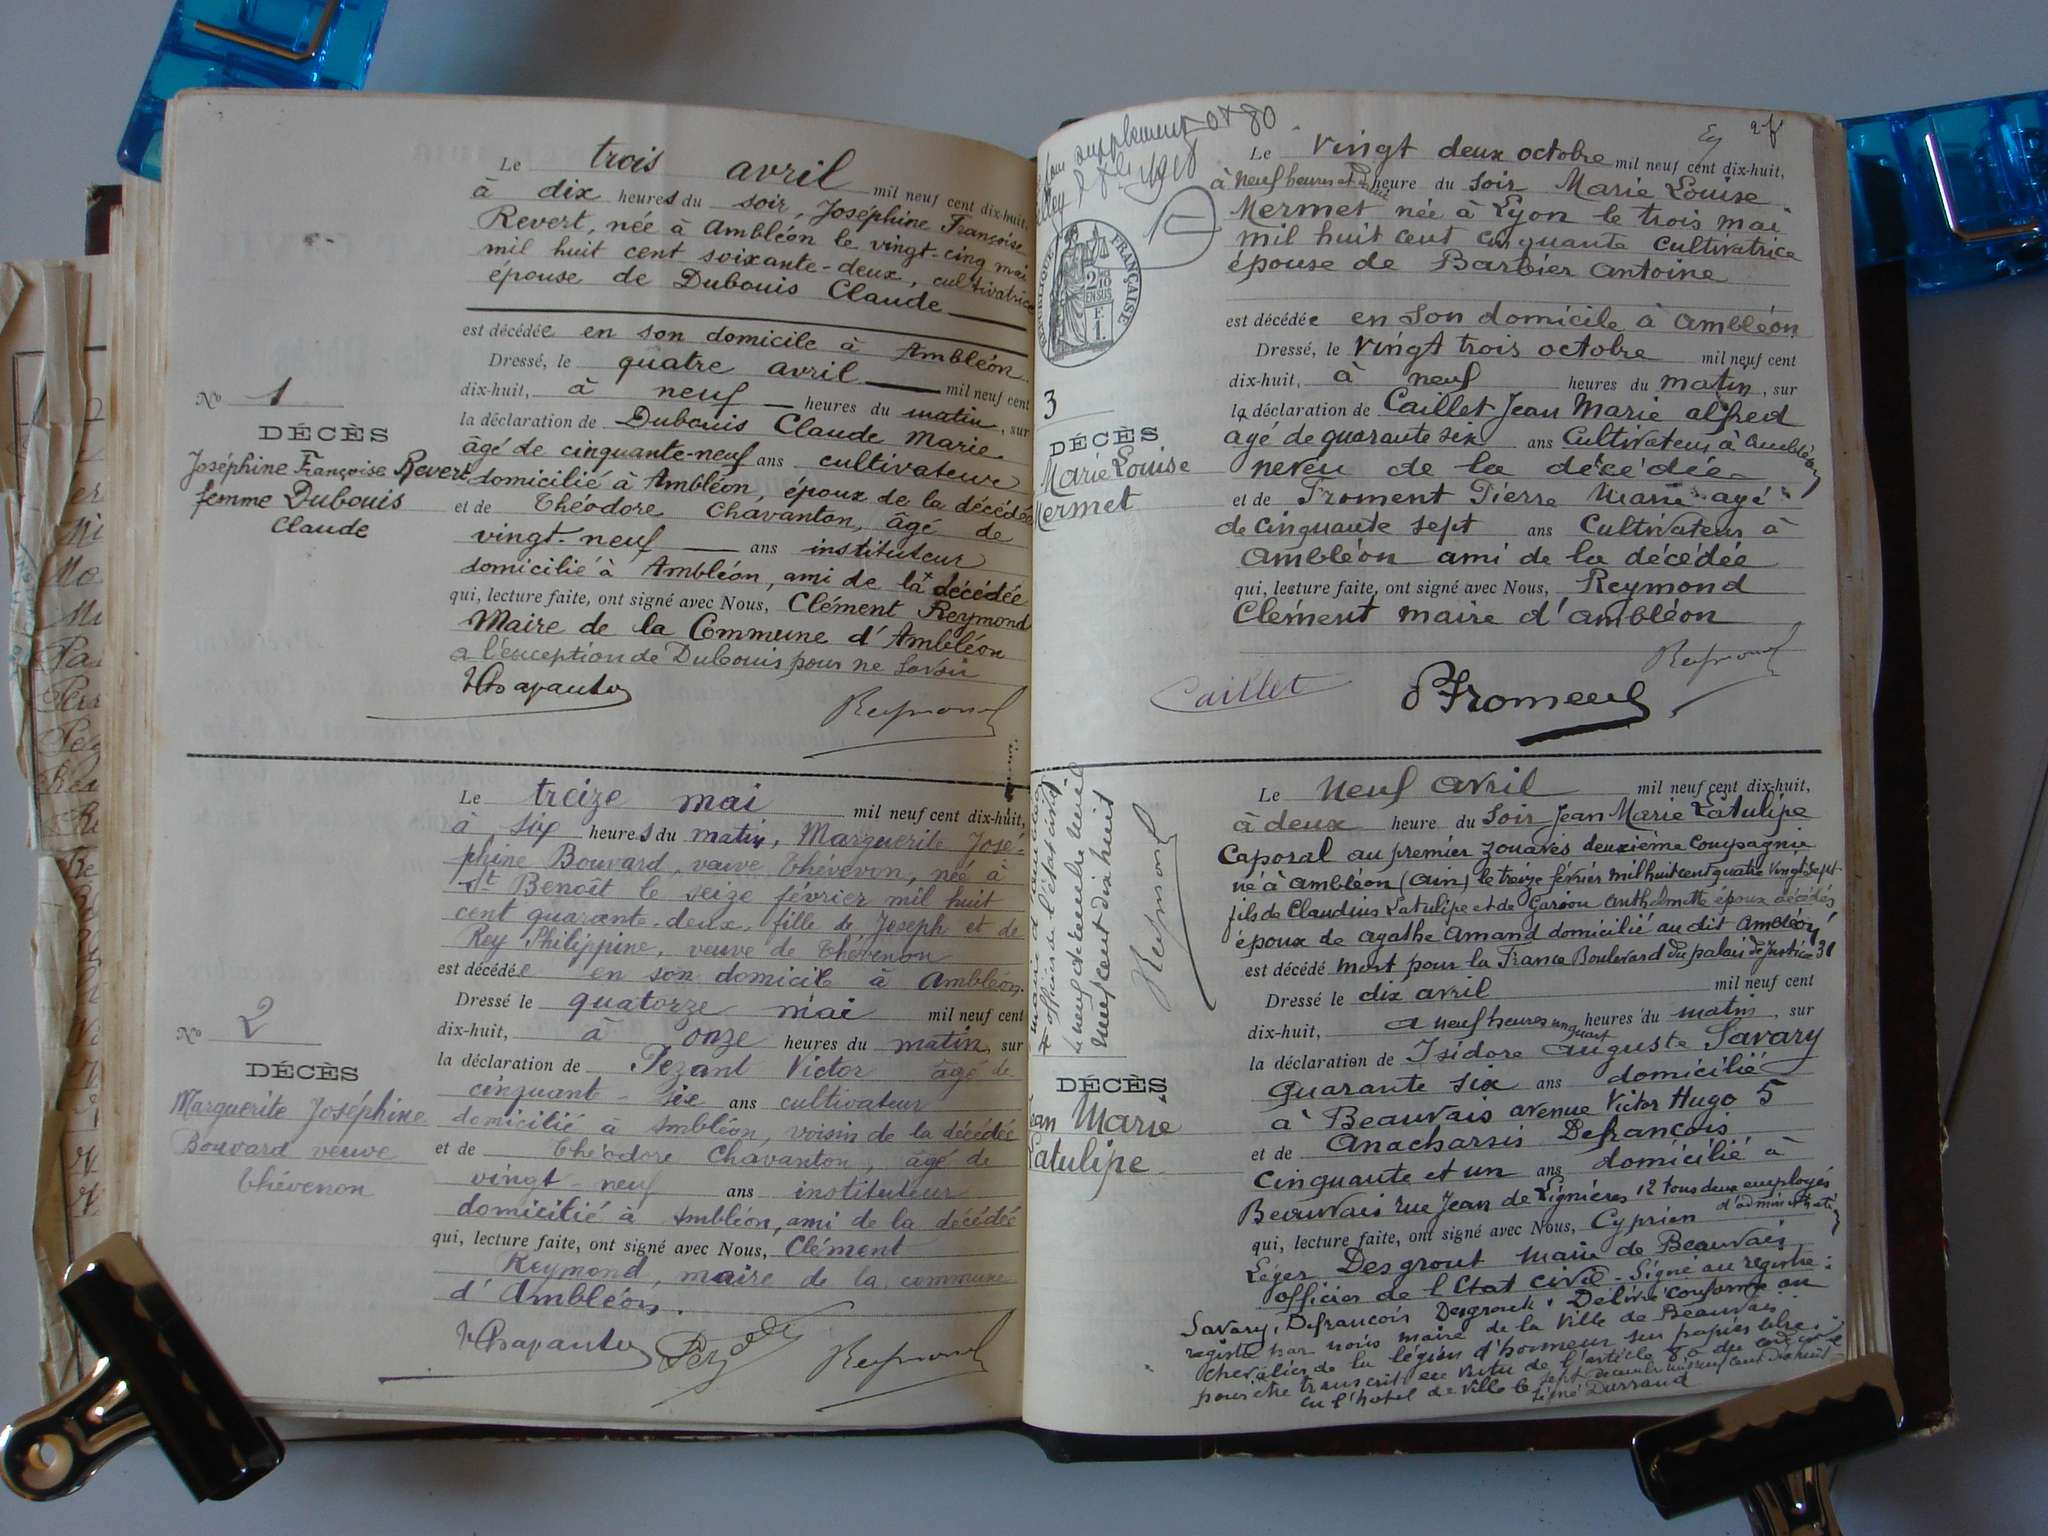 Le trois avril mil neuf cent dix-huit,
à dix heures du soir, Joséphine Françoise
Revert, née à Ambléon le vingt-cinq mai
mil huit cent soixante-deux, cultivatrice
épouse de Dubouis Claude
est décédée en son domicile à Ambléon
Dressé, le quatre avril mil neuf cent
dix-huit, à neuf heures du matin, sur
la déclaration de Dubouis Claude Marie
âgé de cinquante-neuf ans cultivateur
domicilié à Ambléon, époux de la décédée
et de Théodore Chavanton, âgé de
vingt-neuf ans instituteur
domicilié à Ambléon, ami de la décédée
qui, lecture faite, ont signé avec Nous, Clément Reymond
Maire de la Commune d'Ambléon
a l'exception de Dubouis pour ne savoir
Reymond
No 1
DÉCÈS
Joséphine Françoise Revert
femme Dubouis
Claude
Le treize mai mil neuf cent dix-huit,
à six heures du matin, Marguerite José-
phine Bouvard, veuve Thévenon, née à
St Benoît le seize février mil huit
cent quarante-deux, fille de Joseph et de
Rey Philippine, veuve de Thévenon
est décédée en son domicile à Ambléon.
Dressé le quatorze mai mil neuf cent
dix-huit, à onze heures du matin, sur
la déclaration de Pezant Victor âgé de
cinquant-six ans cultivateur
domicilié à Ambléon, voisin de la décédée
et de Théodore Chavanton, âgé de
vingt-neuf ans instituteur
domicilié à Ambléon, ami de la décédée
qui, lecture faite, ont signé avec Nous, Clément
Reymond, maire de la commune
d'Ambléon.
Reymond
No 2
DÉCÈS
Marguerite Joséphine
Bouvard veuve
Thévenon
supplément 0f80
1918
RÉPUBLIQUE FRANÇAISE
Le vingt deux octobre mil neuf cent dix-huit,
à neuf heures et heure du soir Marie Louise
Mermet née à Lyon le trois mai
mil huit cent cinquante cultivatrice
épouse de Barbier Antoine
est décédée en son domicile à Ambléon
Dressé, le vingt trois octobre mil neuf cent
dix-huit, à neuf heures du matin, sur
la déclaration de Caillet Jean Marie alfred
agé de quarante six ans Cultivateur à Ambléon
neveu de la décédée
et de Froment Pierre Marie agé
de cinquante sept ans Cultivateur à
Ambléon ami de la décédée
qui, lecture faite, ont signé avec Nous, Reymond
Clément maire d'ambléon
Reymond
Caillet
Froment
3
DÉCÈS
Marie Louise
Mermet
Le neuf avril mil neuf cent dix-huit,
à deux heure du soir Jean Marie Latulipe
Caporal au premier zouaves deuxième compagnie
né à ambléon (ain) le treize février mil huit cent quatre vingt sept
fils de Claudius Latulipe et de Garion Anthelmette époux décédés
époux de agathe Amand domicilié au dit Ambléon
est décédé mort pour la France Boulevard du palais de justice 31
Dressé le dix avril mil neuf cent
dix-huit, a neuf heures un quart heures du matin, sur
la déclaration de Isidore Auguste Savary
quarante six ans domicilié
à Beauvais avenue Victor Hugo 5
et de Anacharsis Defrancois
cinquante et un ans domicilié à
Beauvais rue Jean de Lignières 12 tous deux employés
d'administration
qui, lecture faite, ont signé avec Nous, Cyprien
Léger Desgrout maire de Beauvais
officier de l'Etat civil. Signé au registre:
Savary, Defrancois Desgrout. Délivré conforme au
registre par nous maire de la Ville de Beauvais
chevalier de la légion d'honneur sur papier libre
pour être transcrit en vertu de l'article 80 du code civil
en l'hotel de Ville le sept décembre mil neuf cent dix huit
signé Durrand
officier de l'état civil
Le neuf décembre mil
neuf cent dix huit
Reymond
DÉCÈS
Jean Marie
Latulipe